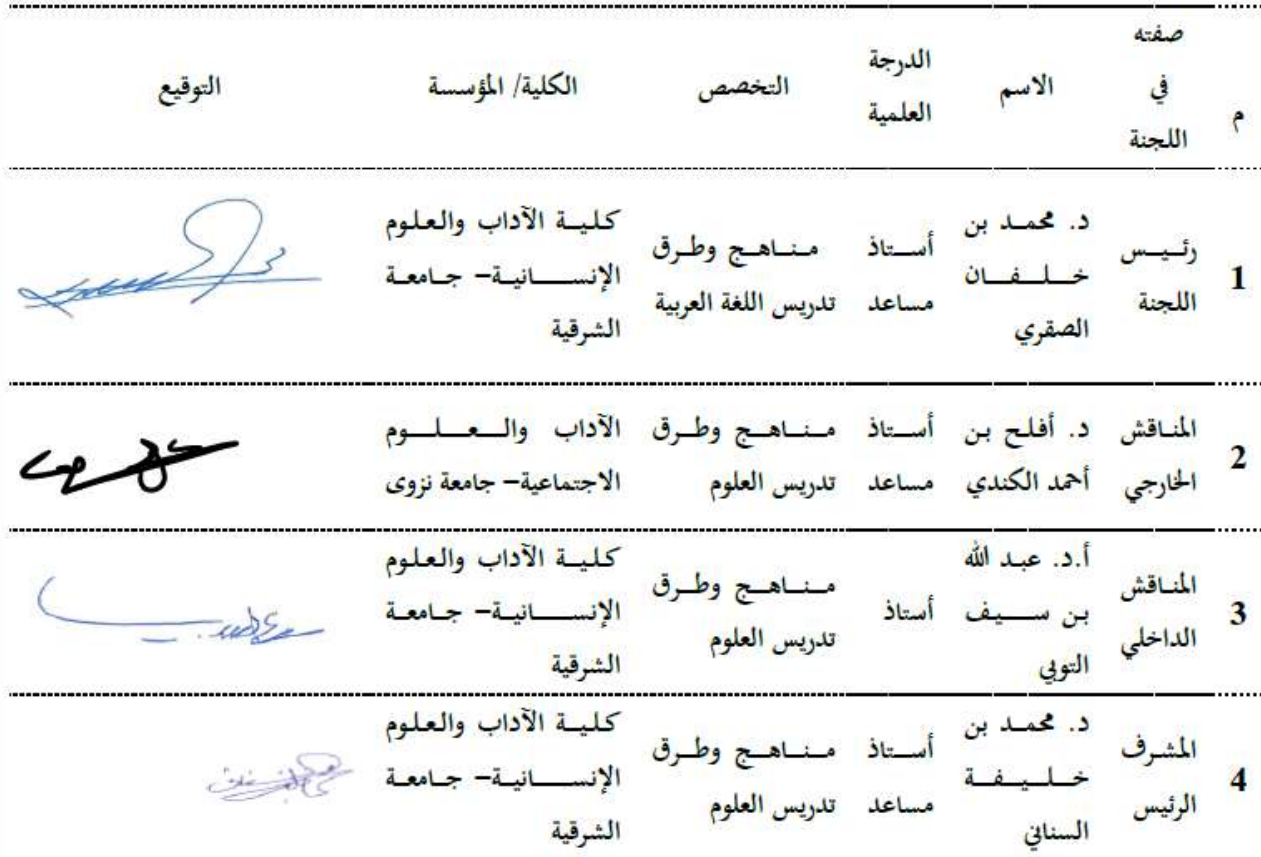 م صفته في اللجنة الاسم الدرجة العلمية التخصص الكلية/ المؤسسة التوقيع
1 رئيس اللجنة د. محمد بن خلفان الصقري أستاذ مساعد مناهج وطرق تدريس اللغة العربية كلية الآداب والعلوم الإنسانية– جامعة الشرقية
2 المناقش الخارجي د. أفلح بن أحمد الكندي أستاذ مساعد مناهج وطرق تدريس العلوم الآداب والعلوم الاجتماعية– جامعة نزوى
3 المناقش الداخلي أ.د. عبد الله بن سيف التوبي أستاذ مناهج وطرق تدريس العلوم كلية الآداب والعلوم الإنسانية– جامعة الشرقية
4 المشرف الرئيس د. محمد بن خليفة السناني أستاذ مساعد مناهج وطرق تدريس العلوم كلية الآداب والعلوم الإنسانية– جامعة الشرقية